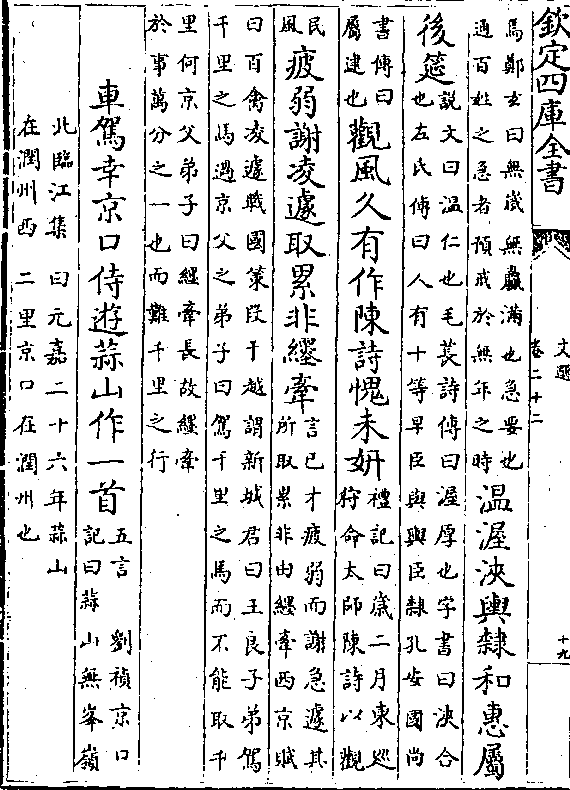 欽定四庫全書
文選
卷二十二
十九
焉鄭玄曰無歲無贏滿也急要也
通百姓之急者預戒於無年之時
温渥浹輿隸和惠屬
後筵
說文曰温仁也毛萇詩傳曰渥厚也字書曰浹合
也左氏傳曰人有十等早臣與輿臣隸孔安國尚
書傳曰
屬逮也
觀風久有作陳詩愧未妍
禮記曰歲二月東巡
狩命太師陳詩以觀
民
風
疲弱謝凌遽取累非纆牽
言已才疲弱而謝急遽其
所取累非由纆牽西京賦
曰百禽凌遽戰國策段干越謂新城君曰王良子弟駕
千里之馬過京父之弟子曰駕千里之馬而不能取千
里何京父弟子曰纆牽長故纆牽
於事萬分之一也而難千里之行
車駕幸京口侍遊蒜山作一首
五言 劉禎京口
記曰蒜山無峯嶺
北臨江集 曰元嘉二十六年蒜山
在潤州西 二里京口在潤州也